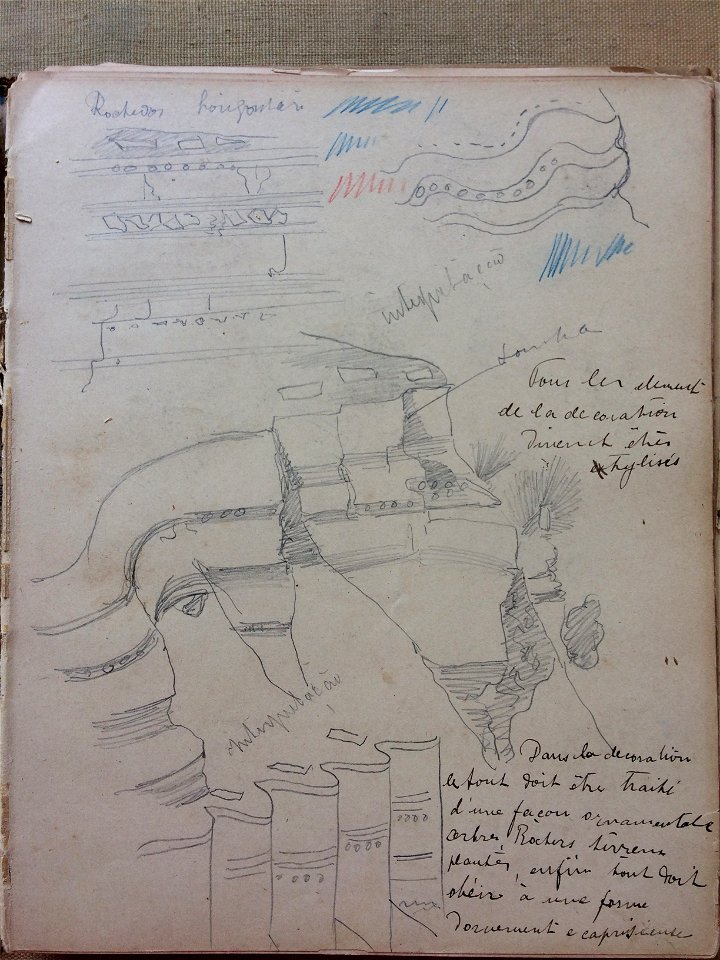 Rochedos
interpretação
sombra
Tous les element
de la decoration
êtrés
stylisés
interpretação
Dans la decoration
le font doit être traité
d'une façon ornamentale
arbres, Rochers terreux
plantés, enfin tout doit
obéir à une forme
dornement e caprisieuse